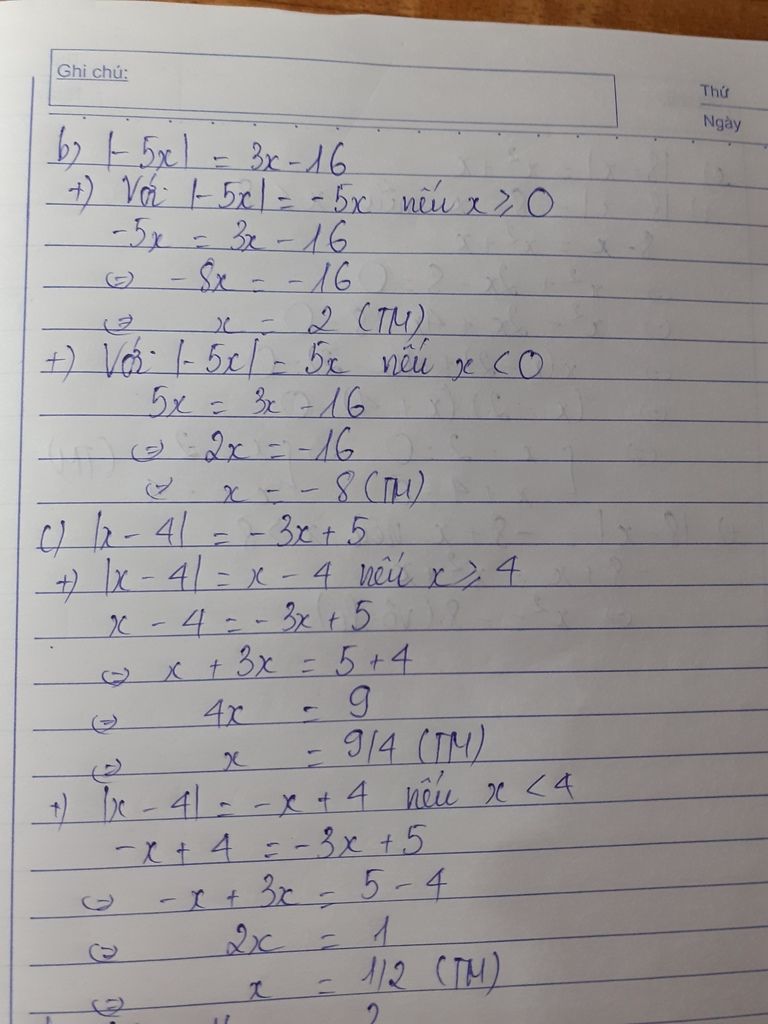 Ghi chú:
Thứ
Ngày
b) |-5x| = 3x - 16
+) Với |-5x| = -5x nếu x ≥ 0
-5x = 3x - 16
⇔ -8x = -16
⇔ x = 2 (TM)
+) Với |-5x| = 5x nếu x < 0
5x = 3x - 16
⇔ 2x = -16
⇔ x = -8 (TM)
c) |x - 4| = -3x + 5
+) |x - 4| = x - 4 nếu x ≥ 4
x - 4 = -3x + 5
⇔ x + 3x = 5 + 4
⇔ 4x = 9
⇔ x = 9/4 (TM)
+) |x - 4| = -x + 4 nếu x < 4
-x + 4 = -3x + 5
⇔ -x + 3x = 5 - 4
⇔ 2x = 1
⇔ x = 1/2 (TM)